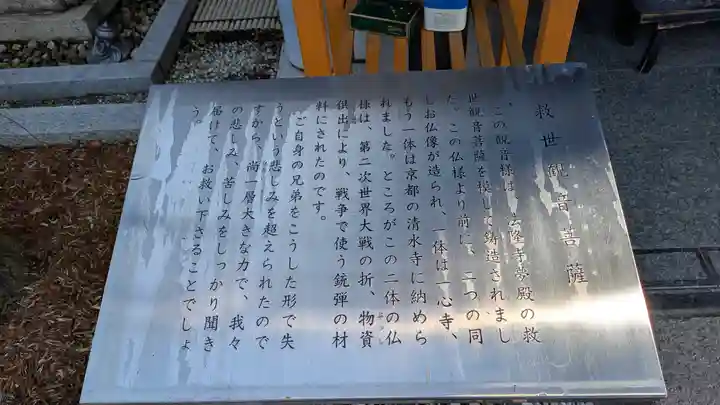 救世観音菩薩
この観音様は、法隆寺夢殿の救
世観音菩薩を模して鋳造されまし
た。この仏様より前に、二つの同
じお仏像が造られ、一体は一心寺、
もう一体は京都の清水寺に納めら
れました。ところがこの二体の仏
様は、第二次世界大戦の折、物資
供出により、戦争で使う銃弾の材
料にされたのです。
ご自身の兄弟をこうした形で失
うという悲しみを超えられたので
すから、尚一層大きな力で、我々
の悲しみ、苦しみをしっかり聞き
届けて、お救い下さることでしょ
う。